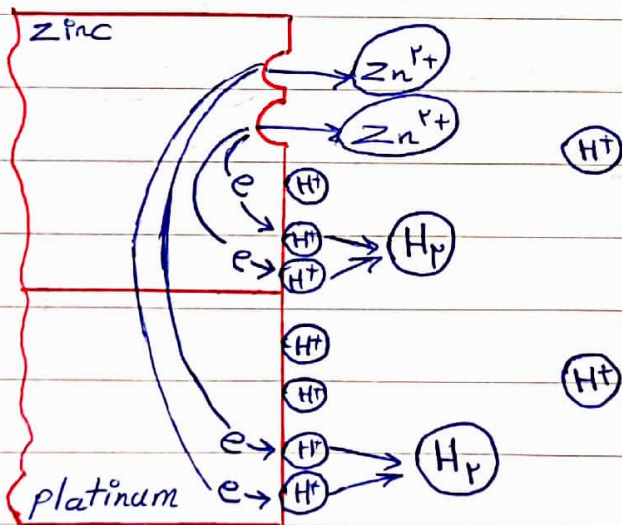 zinc
Zn²⁺
Zn²⁺
H⁺
e
H⁺
H⁺
e
H⁺
H₂
H⁺
H⁺
H⁺
e
H⁺
H₂
platinum
e
H⁺